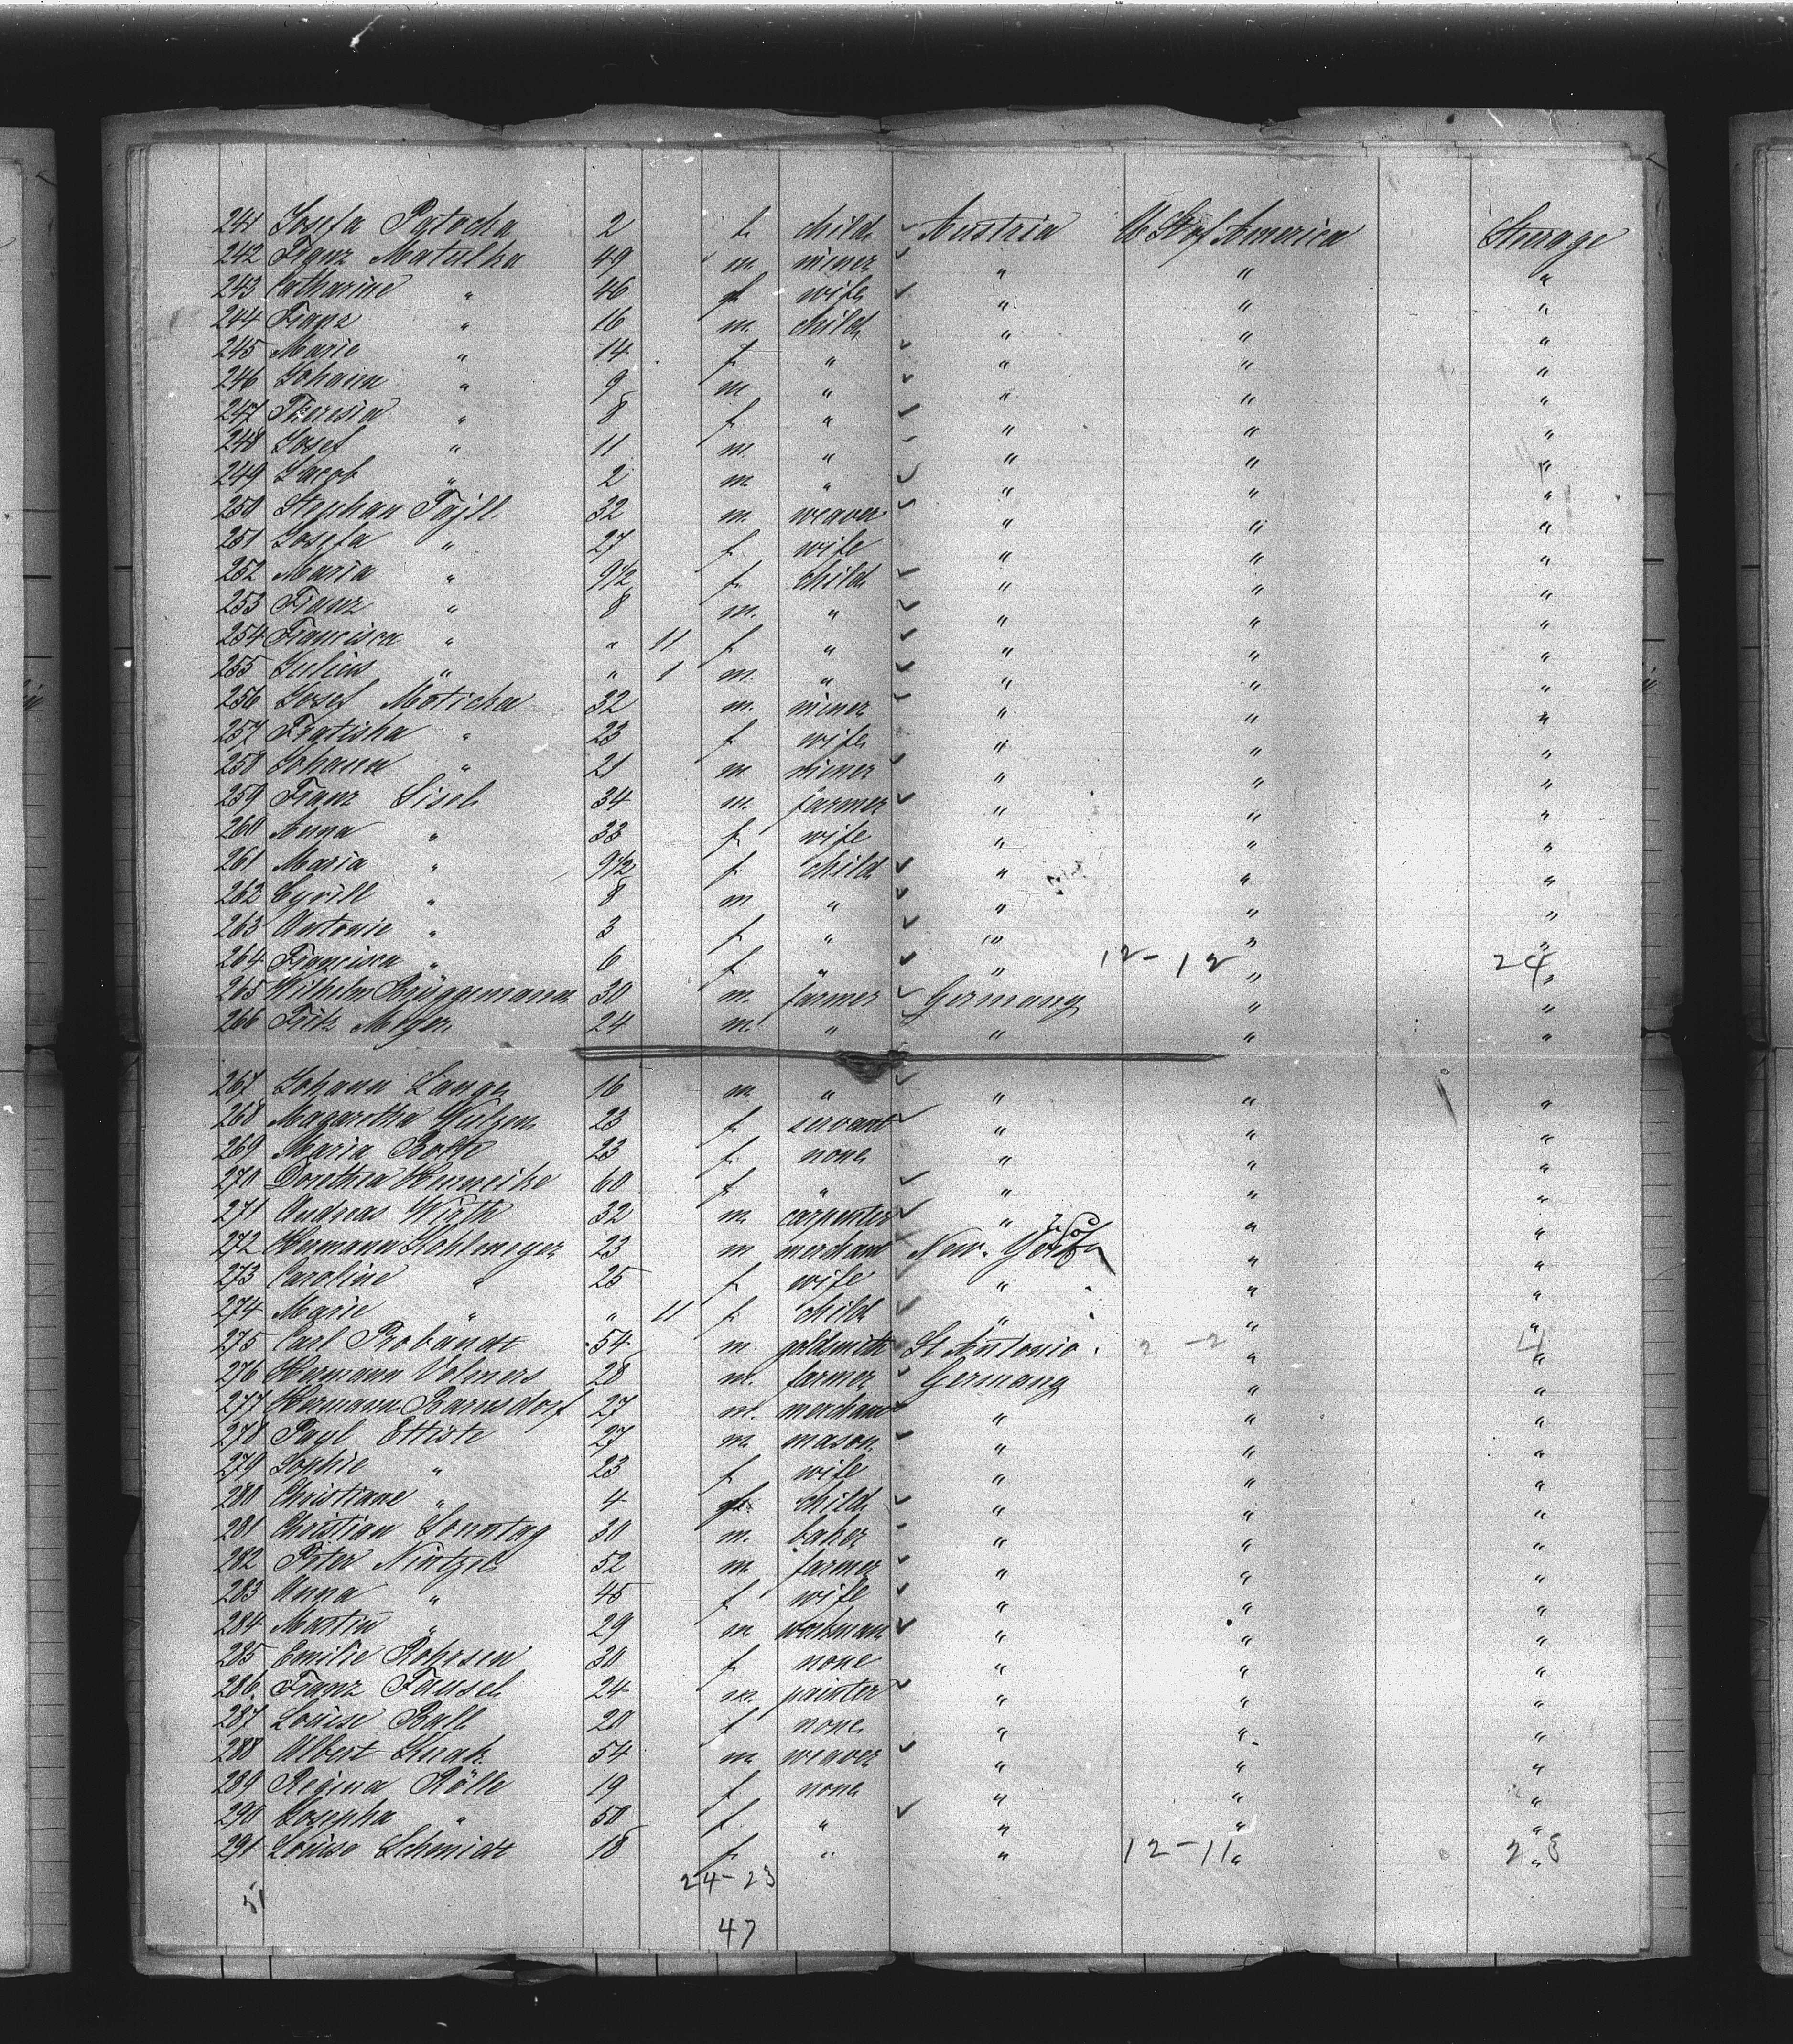 241 Josefa Patocha 2 f. child Austria U. St. of America Sterage
242 Franz Matulka 49 m. miner " " "
243 Catharine " 46 f wife " " "
244 Franz " 16 m. child " " "
245 Marie " 14 f " " " "
246 Johann " 9 m. " " " "
247 Theresia " 8 f " " " "
248 Josef " 11 m. " " " "
249 Jacob " 2 m " " " "
250 Stephan Fajll 32 m. weaver " " "
251 Josefa " 27 f. wife " " "
252 Maria " 9 1/2 f. child " " "
253 Franz " 8 m. " " " "
254 Francisca " " 11 f " " " "
255 Julius " " 1 m. " " " "
256 Josef Moticka 32 m. miner " " "
257 Fratiska " 23 f wife " " "
258 Johann " 21 m miner " " "
259 Franz Sisel 34 m. farmer " " "
260 Anna " 33 f. wife " " "
261 Maria " 9 1/2 f child " " "
262 Cyrill " 8 m " " " "
263 Antonie " 3 f. " " " "
264 Francisca " 6 f " " 12-12 " 24 "
265 Wilhelm Brüggemann 30 m. farmer Germany " "
266 Fritz Meyer 24 m. " " " "
267 Johann Lange 16 m. " " " "
268 Magaretha Wulzen 23 f. servant " " "
269 Maria Bothe 23 f. none " " "
270 Dorothea Hinweike 60 f. " " " "
271 Andreas Wirth 32 m. carpenter " " "
272 Hermann Kohlmeyer 23 m merchant New-York " "
273 Caroline " 25 f wife " " "
274 Marie " " 11 f. child " " "
275 Carl Probandt 54 m goldsmith St Antonio 2-2 " 4 "
276 Hermann Volmers 28 m. farmer Germany " "
277 Hermann Barnsdorf 27 m. merchant " " "
278 Paul Ettiste 27 m. mason " " "
279 Sophie " 23 f wife " " "
280 Christiane " 4 f. child " " "
281 Christian Sonntag 30 m. baker " " "
282 Peter Nintzel 52 m farmer " " "
283 Anna " 45 f wife " " "
284 Martin " 29 m workman " " "
285 Emilie Rohrsen 30 f none " " "
286 Franz Fausel 24 m. painter " " "
287 Louise Ball 20 f none " " "
288 Albert Knak 54 m weaver " " "
289 Regina Rölle 19 f none " " "
290 Josepha " 50 f. " " " "
291 Louise Schmidt 18 f. " " 12-11 " 23 "
24-23
51
47